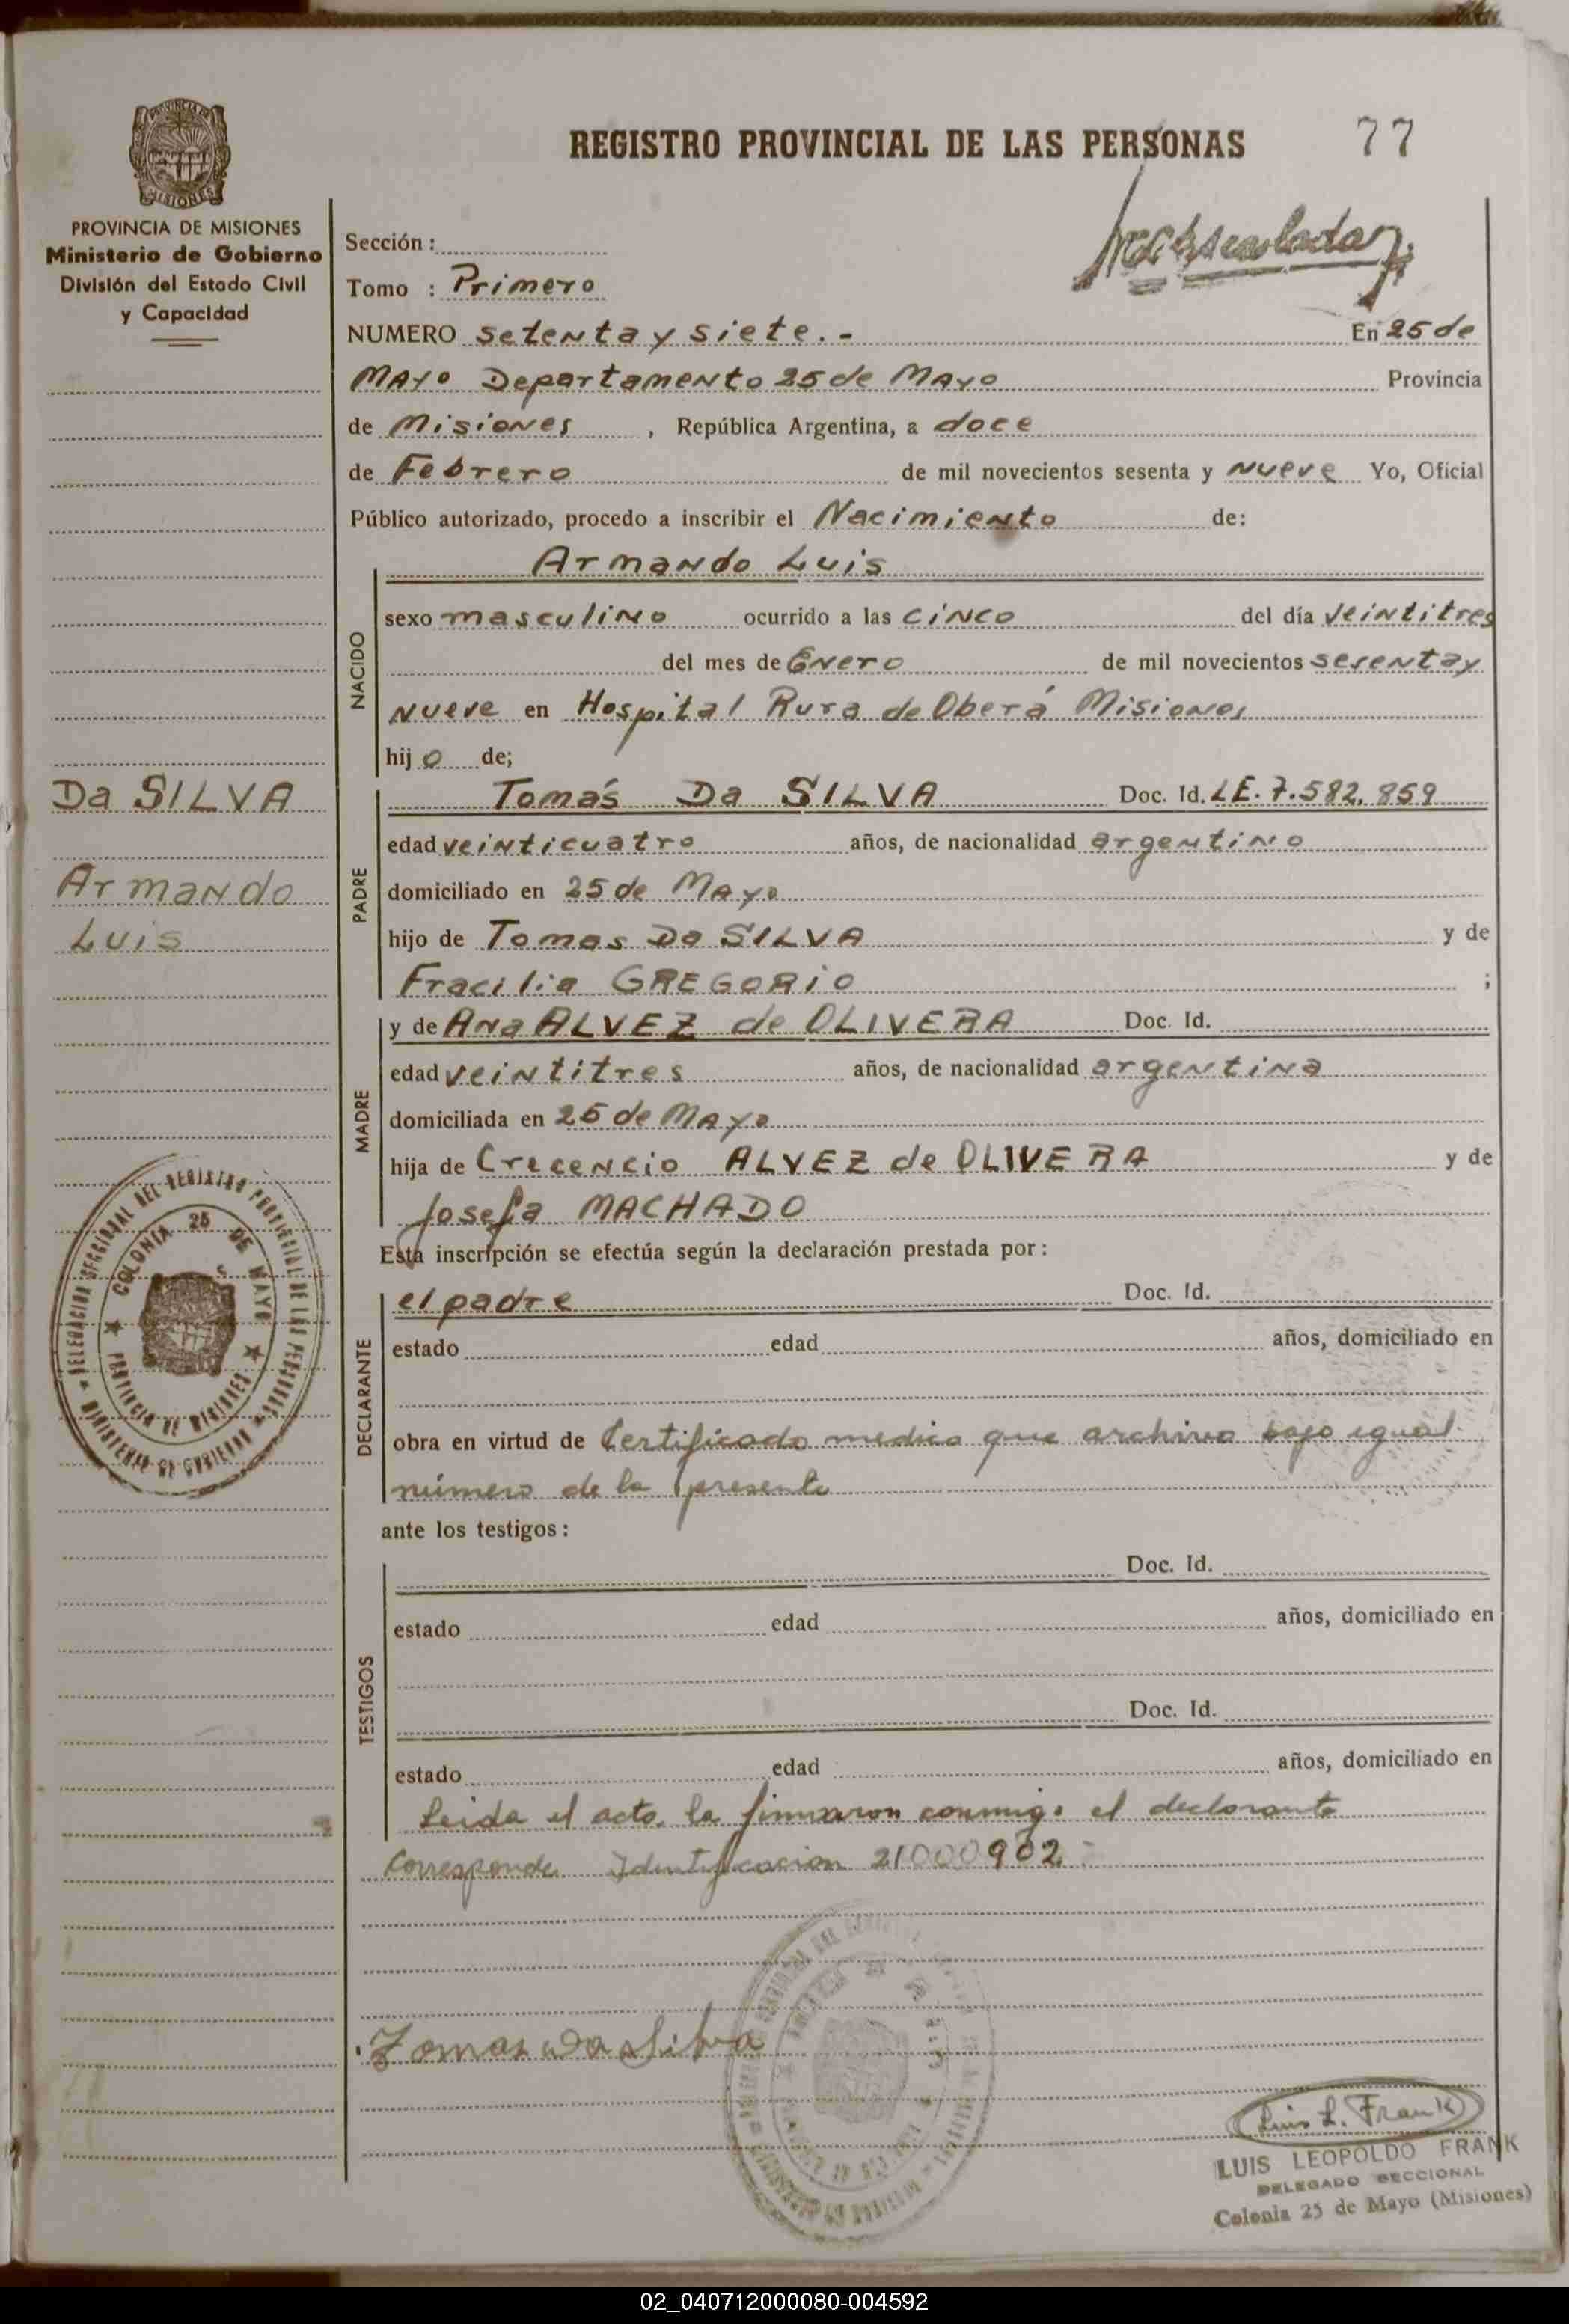 REGISTRO PROVINCIAL DE LAS PERSONAS 77
PROVINCIA DE MISIONES
Ministerio de Gobierno
División del Estado Civil
y Capacidad
Sección :
Tomo : Primero
NUMERO setenta y siete.- En 25 de
Mayo Departamento 25 de Mayo Provincia
de Misiones , República Argentina, a doce
de Febrero de mil novecientos sesenta y nueve Yo, Oficial
Público autorizado, procedo a inscribir el Nacimiento de:
NACIDO
Armando Luis
sexo masculino ocurrido a las cinco del día veintitres
del mes de Enero de mil novecientos sesenta y
nueve en Hospital Rura de Oberá Misiones
hijo de;
Da SILVA
Armando
Luis
PADRE
Tomás Da SILVA Doc. Id. LE. 7.582.859
edad veinticuatro años, de nacionalidad argentino
domiciliado en 25 de Mayo
hijo de Tomas Da SILVA y de
Fracilia GREGORIO ;
MADRE
y de Ana ALVEZ de OLIVERA Doc. Id.
edad veintitres años, de nacionalidad argentina
domiciliada en 25 de Mayo
hija de Crecencio ALVEZ de OLIVERA y de
Josefa MACHADO
Esta inscripción se efectúa según la declaración prestada por :
DECLARANTE
el padre Doc. Id.
estado edad años, domiciliado en
obra en virtud de Certificado medico que archivo bajo igual
número de la presente
ante los testigos :
TESTIGOS
Doc. Id.
estado edad años, domiciliado en
Doc. Id.
estado edad años, domiciliado en
Leida el acta, la firmaron conmigo el declarante
Corresponde Identificacion 21000902 -
DELEGACION SECCIONAL DEL REGISTRO PROVINCIAL DE LAS PERSONAS
MINISTERIO DE GOBIERNO
COLONIA 25 DE MAYO
PROVINCIA DE MISIONES
Tomas da Silva
Luis L. Frank
LUIS LEOPOLDO FRANK
DELEGADO SECCIONAL
Colonia 25 de Mayo (Misiones)
02_040712000080-004592